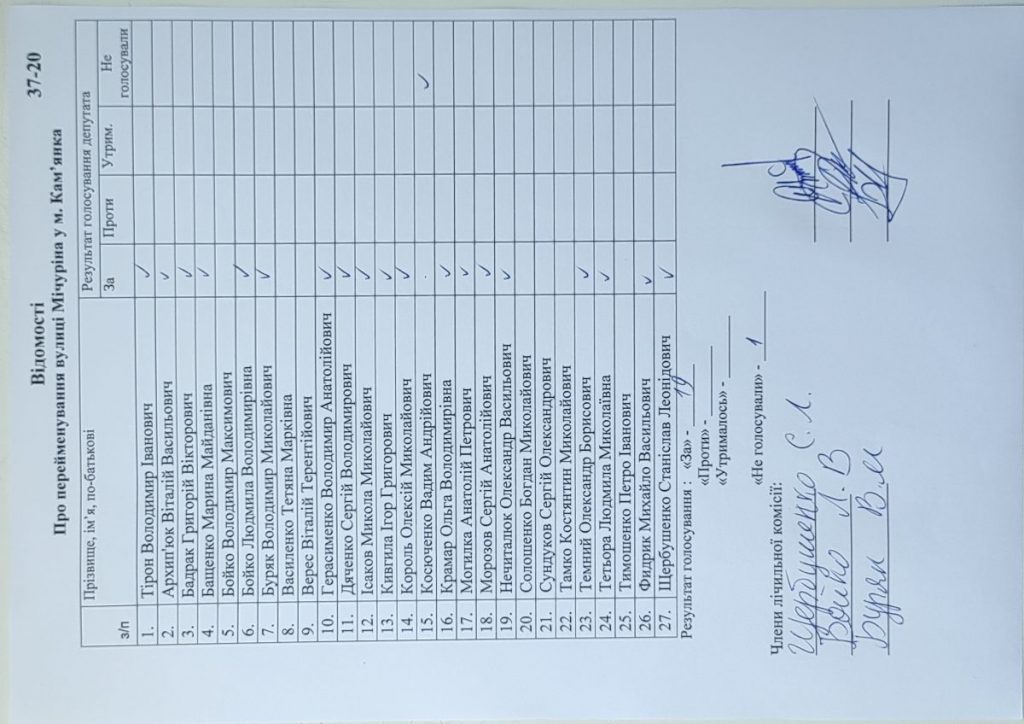 Відомості 37-20
Про перейменування вулиці Мічуріна у м. Кам'янка
з/п Прізвище, ім'я, по-батькові Результат голосування депутата
За Проти Утрим. Не голосували
1. Тірон Володимир Іванович ✓
2. Архип'юк Віталій Васильович ✓
3. Бадрак Григорій Вікторович ✓
4. Бащенко Марина Майданівна ✓
5. Бойко Володимир Максимович
6. Бойко Людмила Володимирівна ✓
7. Буряк Володимир Миколайович ✓
8. Василенко Тетяна Марківна
9. Верес Віталій Терентійович
10. Герасименко Володимир Анатолійович ✓
11. Дяченко Сергій Володимирович ✓
12. Ісаков Микола Миколайович ✓
13. Кивгила Ігор Григорович ✓
14. Король Олексій Миколайович ✓
15. Косюченко Вадим Андрійович ✓
16. Крамар Ольга Володимирівна ✓
17. Могилка Анатолій Петрович ✓
18. Морозов Сергій Анатолійович ✓
19. Нечиталюк Олександр Васильович ✓
20. Солошенко Богдан Миколайович
21. Сундуков Сергій Олександрович
22. Тамко Костянтин Миколайович
23. Темний Олександр Борисович ✓
24. Тетьора Людмила Миколаївна ✓
25. Тимошенко Петро Іванович
26. Фидрик Михайло Васильович ✓
27. Щербушенко Станіслав Леонідович ✓
Результат голосування : «За» - 19
«Проти» -
«Утрималось» -
«Не голосували» - 1
Члени лічильної комісії:
Щербушенко С. Л.
Бойко Л. В
Буряк В.М